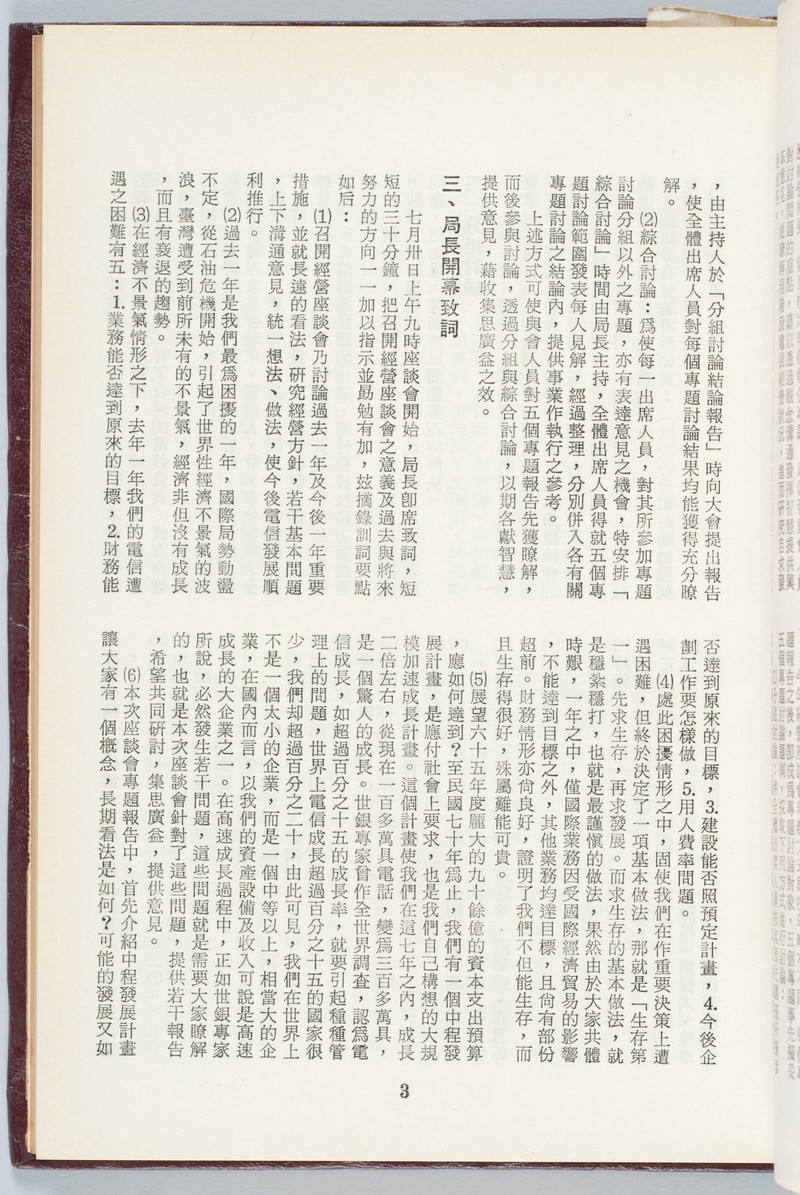 ，由主持人於「分組討論結論報告」時向大會提出報告
，使全體出席人員對每個專題討論結果均能獲得充分瞭
解。
⑵綜合討論：爲使每一出席人員，對其所參加專題
討論分組以外之專題，亦有表達意見之機會，特安排「
綜合討論」時間由局長主持，全體出席人員得就五個專
題討論範圍發表每人見解，經過整理，分別併入各有關
專題討論之結論內，提供事業作執行之參考。
上述方式可使與會人員對五個專題報告先獲瞭解，
而後參與討論，透過分組與綜合討論，以期各獻智慧，
提供意見，藉收集思廣益之效。
三、局長開幕致詞
七月卅日上午九時座談會開始，局長卽席致詞，短
短的三十分鐘，把召開經營座談會之意義及過去與將來
努力的方向一一加以指示並勗勉有加，玆摘錄訓詞要點
如后：
⑴召開經營座談會乃討論過去一年及今後一年重要
措施，並就長遠的看法，研究經營方針，若干基本問題
，上下溝通意見，統一想法、做法，使今後電信發展順
利推行。
⑵過去一年是我們最爲困擾的一年，國際局勢動盪
不定，從石油危機開始，引起了世界性經濟不景氣的波
浪，臺灣遭受到前所未有的不景氣，經濟非但沒有成長
，而且有衰退的趨勢。
⑶在經濟不景氣情形之下，去年一年我們的電信遭
遇之困難有五：1.業務能否達到原來的目標，2.財務能
否達到原來的目標，3.建設能否照預定計畫，4.今後企
劃工作要怎樣做，5.用人費率問題。
⑷處此困擾情形之中，固使我們在作重要決策上遭
遇困難，但終於決定了一項基本做法，那就是「生存第
一」。先求生存，再求發展。而求生存的基本做法，就
是穩紮穩打，也就是最謹愼的做法，果然由於大家共體
時艱，一年之中，僅國際業務因受國際經濟貿易的影響
，不能達到目標之外，其他業務均達目標，且尙有部份
超前。財務情形亦尙良好，證明了我們不但能生存，而
且生存得很好，殊屬難能可貴。
⑸展望六十五年度龐大的九十餘億的資本支出預算
，應如何達到？至民國七十年爲止，我們有一個中程發
展計畫，是應付社會上要求，也是我們自己構想的大規
模加速成長計畫。這個計畫使我們在這七年之內，成長
二倍左右，從現在一百多萬具電話，變爲三百多萬具，
是一個驚人的成長。世銀專家曾作全世界調查，認爲電
信成長，如超過百分之十五的成長率，就要引起種種管
理上的問題，世界上電信成長超過百分之十五的國家很
少，我們却超過百分之二十，由此可見，我們在世界上
不是一個太小的企業，而是一個中等以上，相當大的企
業，在國內而言，以我們的資產設備及收入可說是高速
成長的大企業之一。在高速成長過程中，正如世銀專家
所說，必然發生若干問題，這些問題就是需要大家瞭解
的，也就是本次座談會針對了這些問題，提供若干報告
，希望共同研討，集思廣益，提供意見。
⑹本次座談會專題報告中，首先介紹中程發展計畫
讓大家有一個槪念，長期看法是如何？可能的發展又如
3